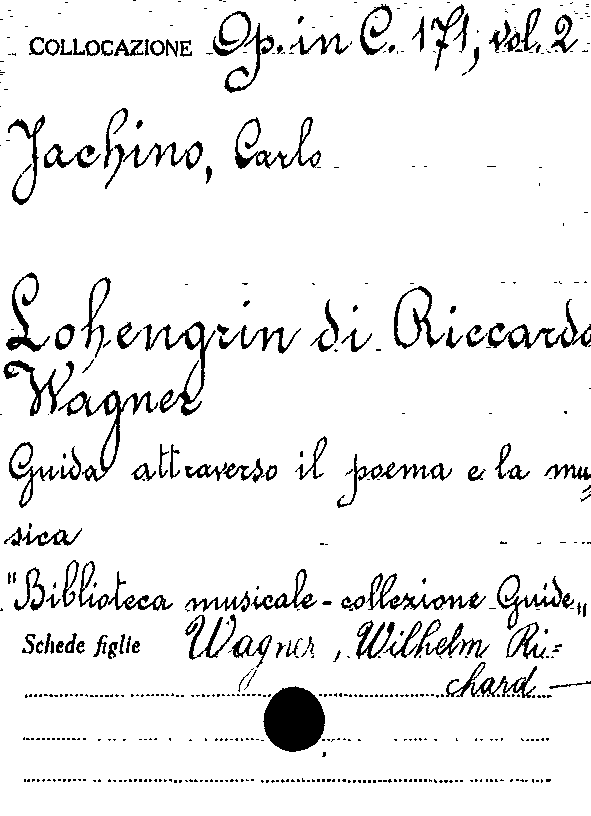 COLLOCAZIONE Op. in C. 171, vol. 2
Jachino, Carlo
Lohengrin di Riccardo
Wagner
Guida attraverso il poema e la mu=
sica
"Biblioteca musicale - collezione Guide„
Schede figlie Wagner, Wilhelm Ri=
chard —